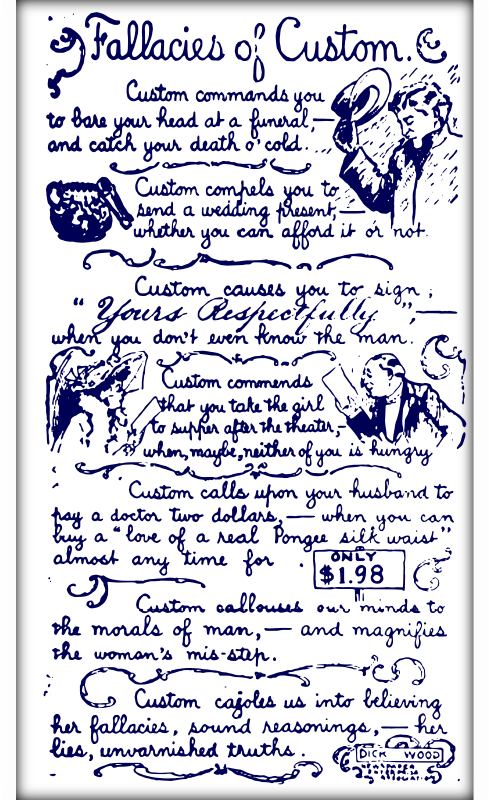 Fallacies of Custom.
Custom commands you
to bare your head at a funeral,—
and catch your death o' cold.
Custom compels you to
send a wedding present,—
whether you can afford it or not.
Custom causes you to sign ;
"Yours Respectfully",—
when you don't even know the man.
Custom commends
that you take the girl
to supper after the theater,—
when, maybe, neither of you is hungry.
Custom calls upon your husband to
pay a doctor two dollars,— when you can
buy a "love of a real Pongee silk waist"
almost any time for
ONLY
$1.98
Custom callouses our minds to
the morals of man,— and magnifies
the woman's mis-step.
Custom cajoles us into believing
her fallacies, sound reasonings,— her
lies, unvarnished truths.
DICK WOOD
NEWSPAPER
ENTERPRISE
ASSOCIATION